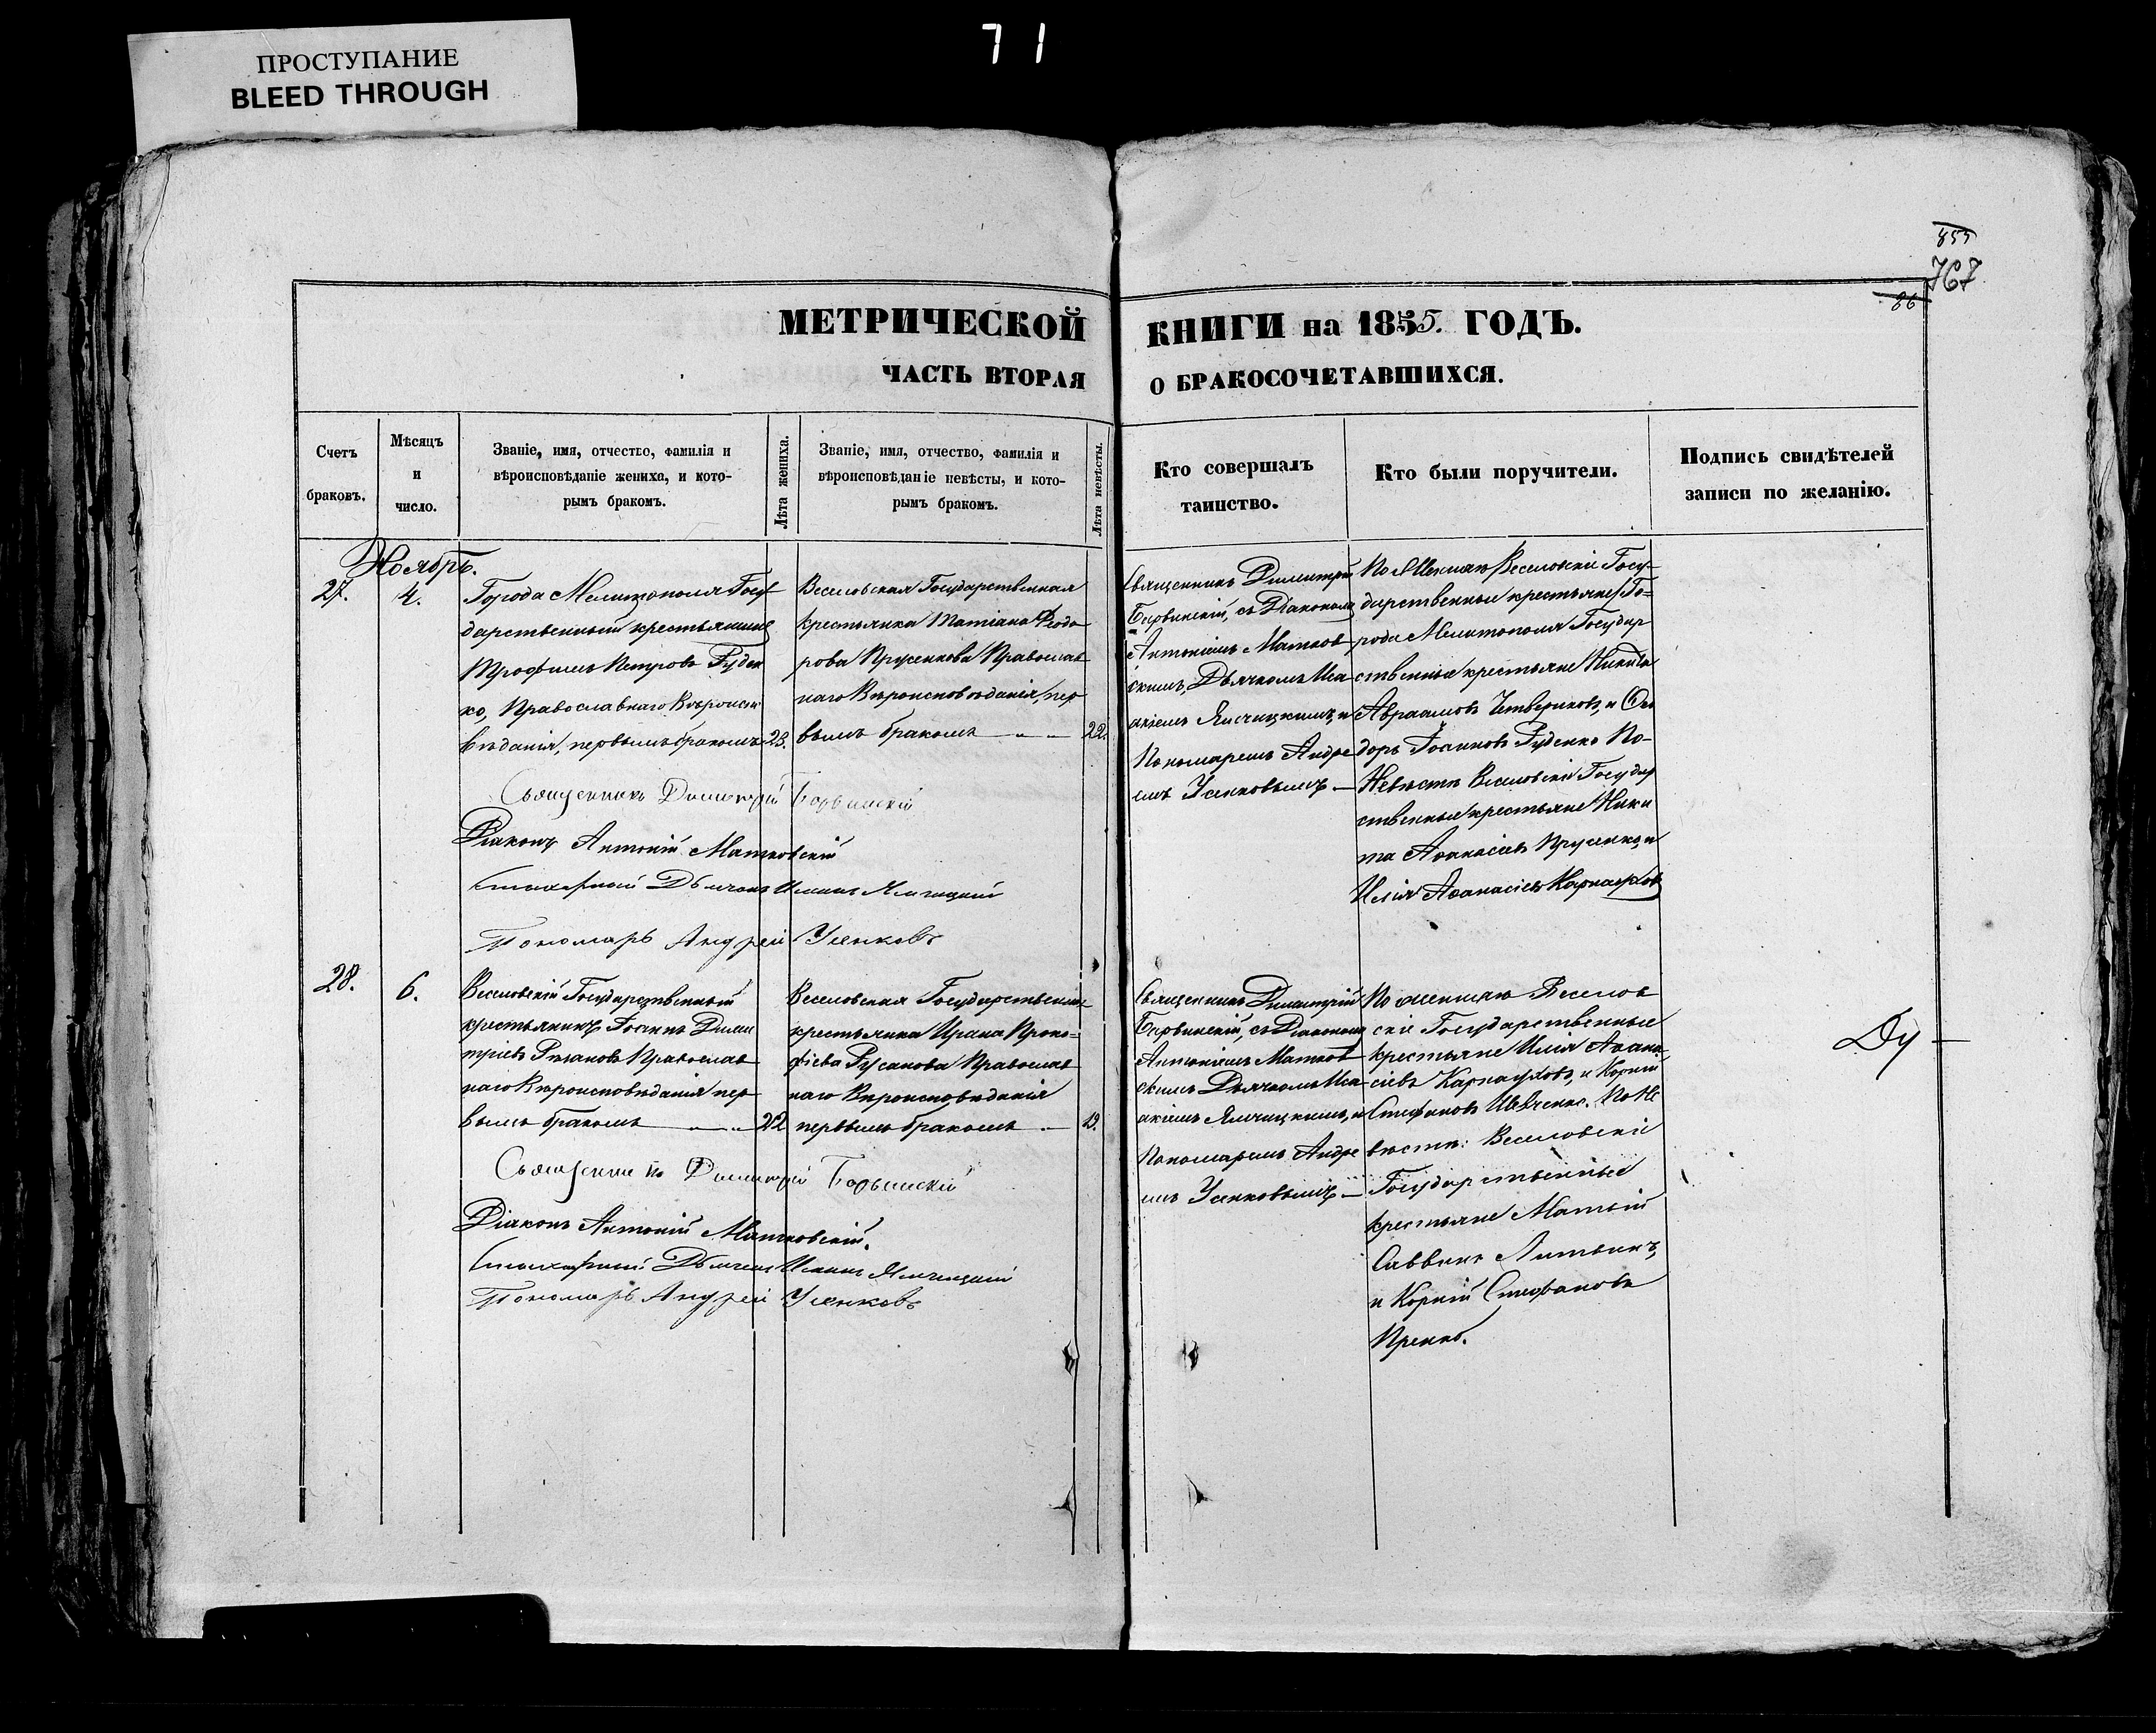 ПРОСТУПАНИЕ
BLEED THROUGH
71
767
86
МЕТРИЧЕСКОЙ КНИГИ на 1855. ГОДЪ.
ЧАСТЬ ВТОРАЯ О БРАКОСОЧЕТАВШИХСЯ.
Счетъ
браковъ.
Мѣсяцъ
и
число.
Званіе, имя, отчество, фамилія и
вѣроисповѣданіе жениха, и кото-
рымъ бракомъ.
Лѣта жениха.
Званіе, имя, отчество, фамилія и
вѣроисповѣданіе невѣсты, и кото-
рымъ бракомъ.
Лѣта невѣсты.
Кто совершалъ
таинство.
Кто были поручители.
Подпись свидѣтелей
записи по желанію.
Ноябрь.
27.
4.
Города Мелитополя Госу
дарственный крестьянинъ
Трофимъ Петровъ Руден
ко, Православнаго Вѣроиспо
вѣданія, первымъ бракомъ
23.
Веселовская Государственная
крестьянка Татіана Ѳеодо
рова Прусенкова Православ
наго Вѣроисповѣданія, пер
вымъ бракомъ
22.
Священникъ Димитрій
Барвинскій, съ Діакономъ
Антоніемъ Матков
скимъ, Дьячкомъ Иса
акіемъ Ямчицкимъ, и
Пономаремъ Андре
емъ Усенковымъ —
По Женихѣ
Веселовскіе Госу-
дарственные крестьяне Го-
рода Мелитополя Государ
ственные крестьяне Никита
Авраамовъ Четвериковъ, и Ѳео
доръ Іоанновъ Руденко По-
Невѣстѣ Веселовскіе Государ
ственные крестьяне Ники
та Аѳанасіевъ Прусенко, и
Илія Аѳанасіевъ Карнауховъ
Священникъ Димитрій Барвинскій
Діаконъ Антоній Матковскій
Дьячекъ Исаакъ Ямчицкій
Пономарь Андрей Усенковъ
28.
6.
Веселовскій Государственный
крестьянинъ Іоаннъ Дими
тріевъ Рязановъ Православ
наго Вѣроисповѣданія пер
вымъ бракомъ
22
Веселовская Государственная
крестьянка Ирина Проко-
фіева Русанова Православ
наго Вѣроисповѣданія
первымъ бракомъ —
19.
Священникъ Димитрій
Барвинскій, съ Діакономъ
Антоніемъ Матков
скимъ Дьячкомъ Иса
акіемъ Ямчицкимъ, и
Пономаремъ Андре
емъ Усенковымъ —
По женихѣ Веселов
скіе Государственные
крестьяне Илія Аѳана
сіевъ Карнауховъ, и Корній
Стефановъ Шевченко. По Не
вѣстѣ: Веселовскіе
Государственные
крестьяне Матвій
Саввинъ Литвинъ,
и Корній Стефановъ
Священникъ Димитрій Барвинскій
Діаконъ Антоній Матковскій.
Дьячекъ Исаакъ Ямчицкій
Пономарь Андрей Усенковъ
Ду —